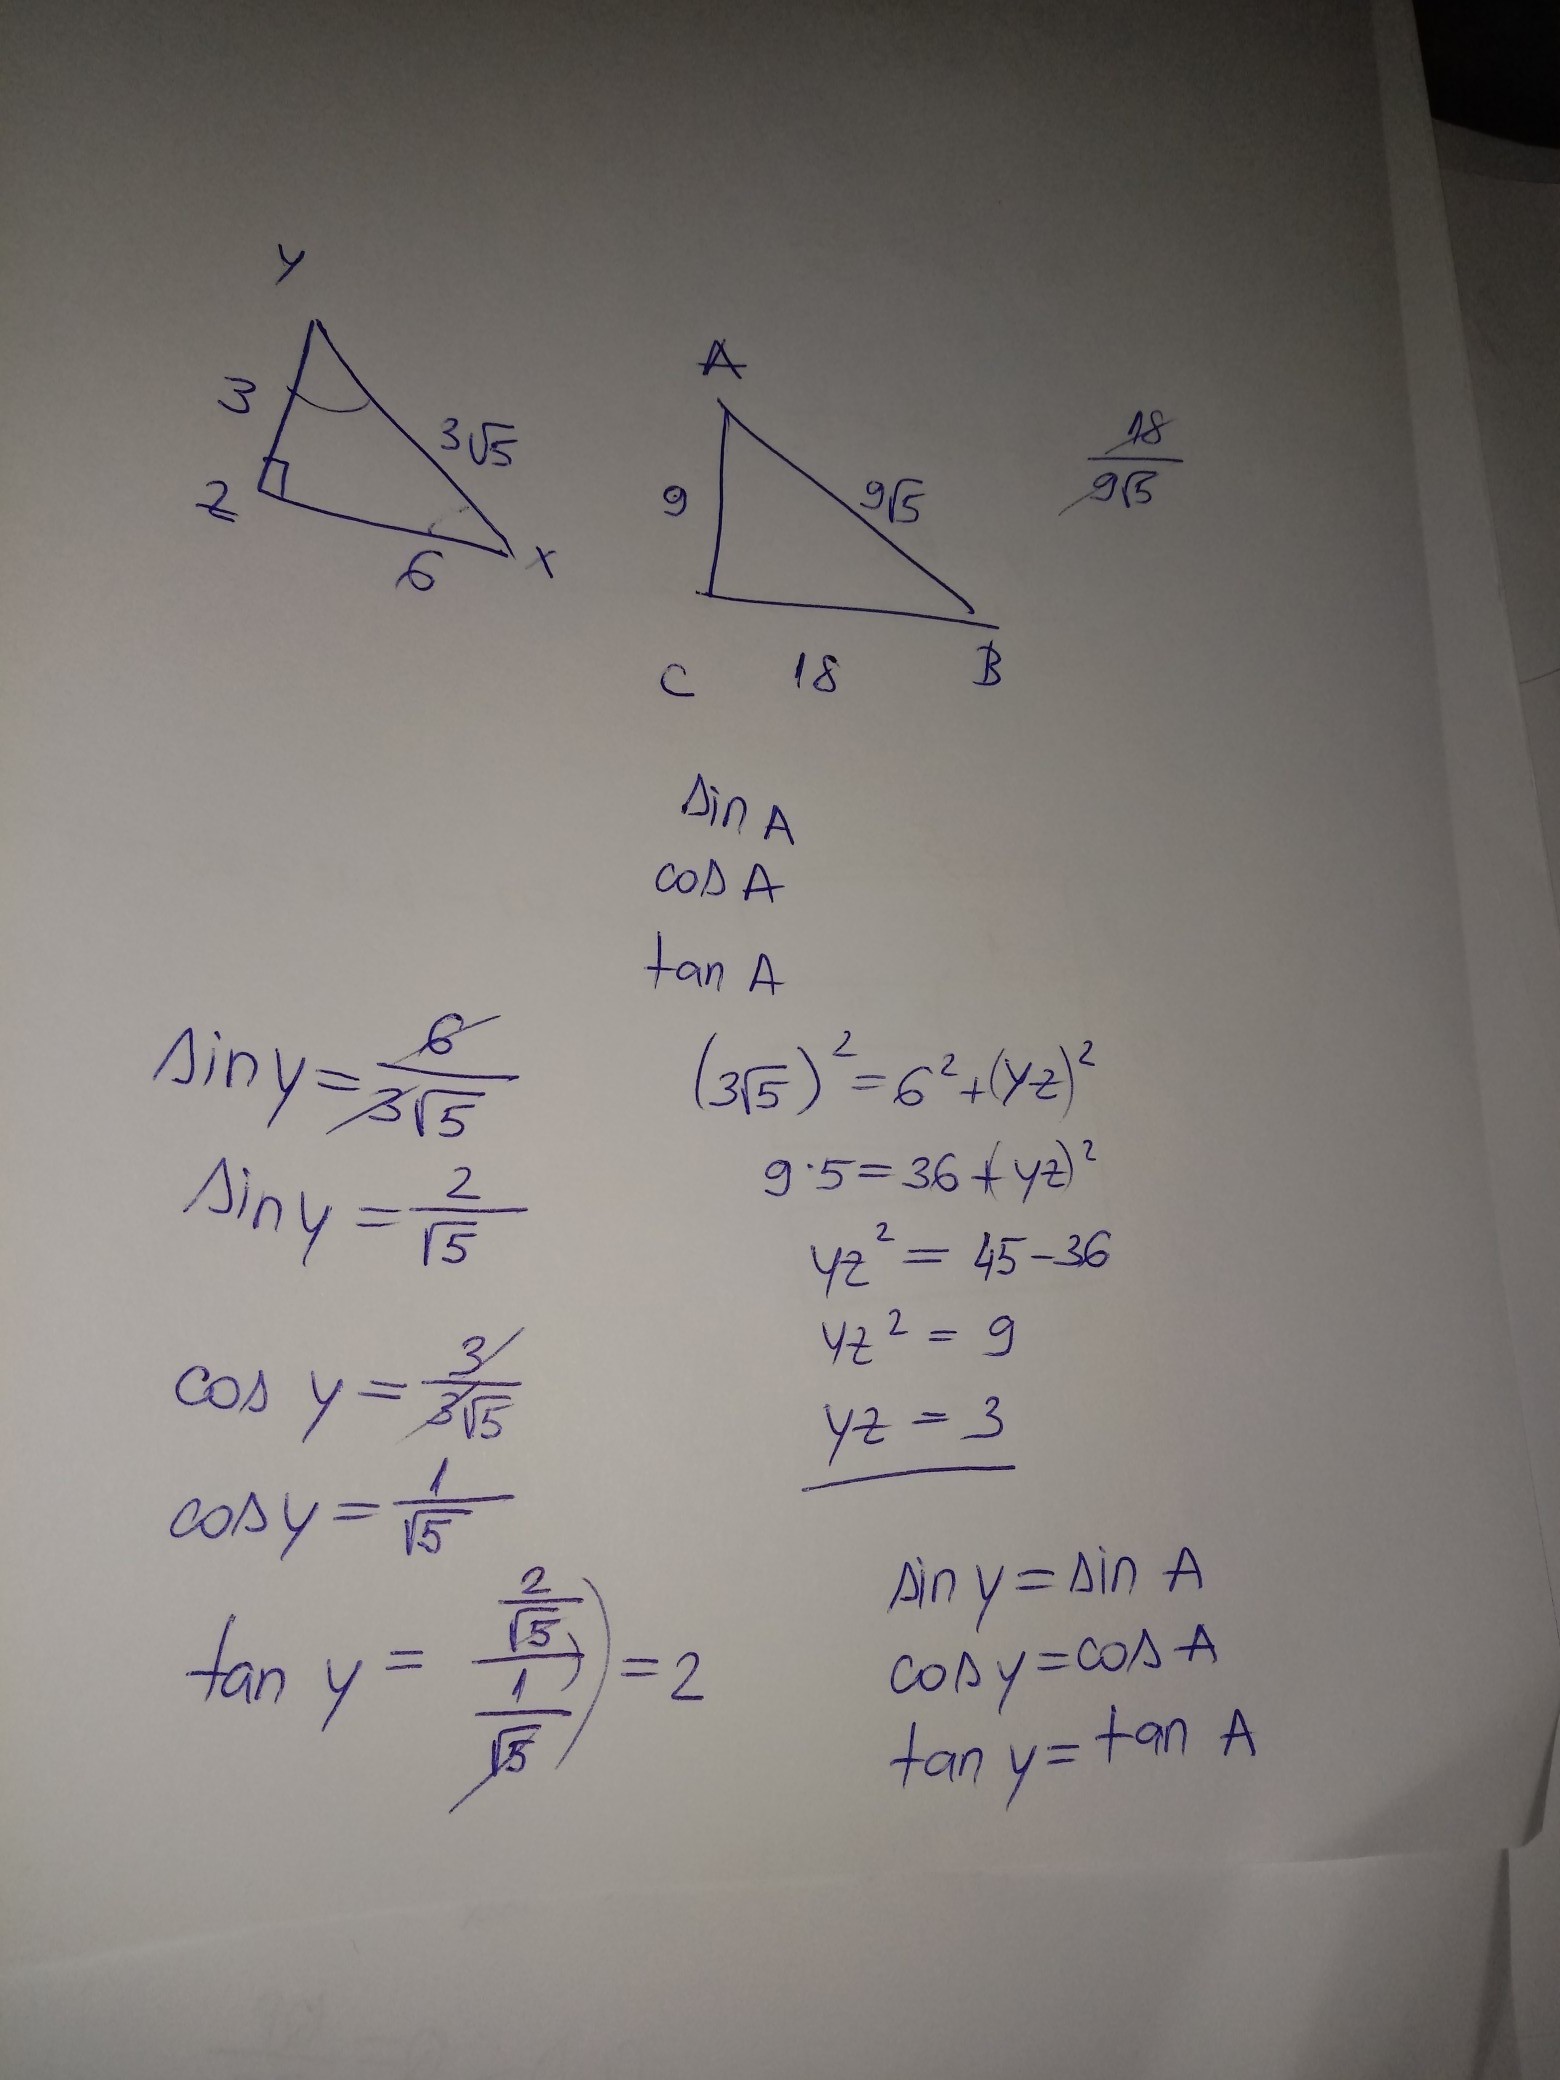 Y
3
3√5
Z
6
X
A
9
9√5
C
18
B
18/9√5
sin A
cos A
tan A
sin y = 6/3√5
sin y = 2/√5
cos y = 3/3√5
cos y = 1/√5
tan y = (2/√5)/(1/√5) = 2
(3√5)² = 6² + (yz)²
9·5 = 36 + (yz)²
yz² = 45 - 36
yz² = 9
yz = 3
sin y = sin A
cos y = cos A
tan y = tan A